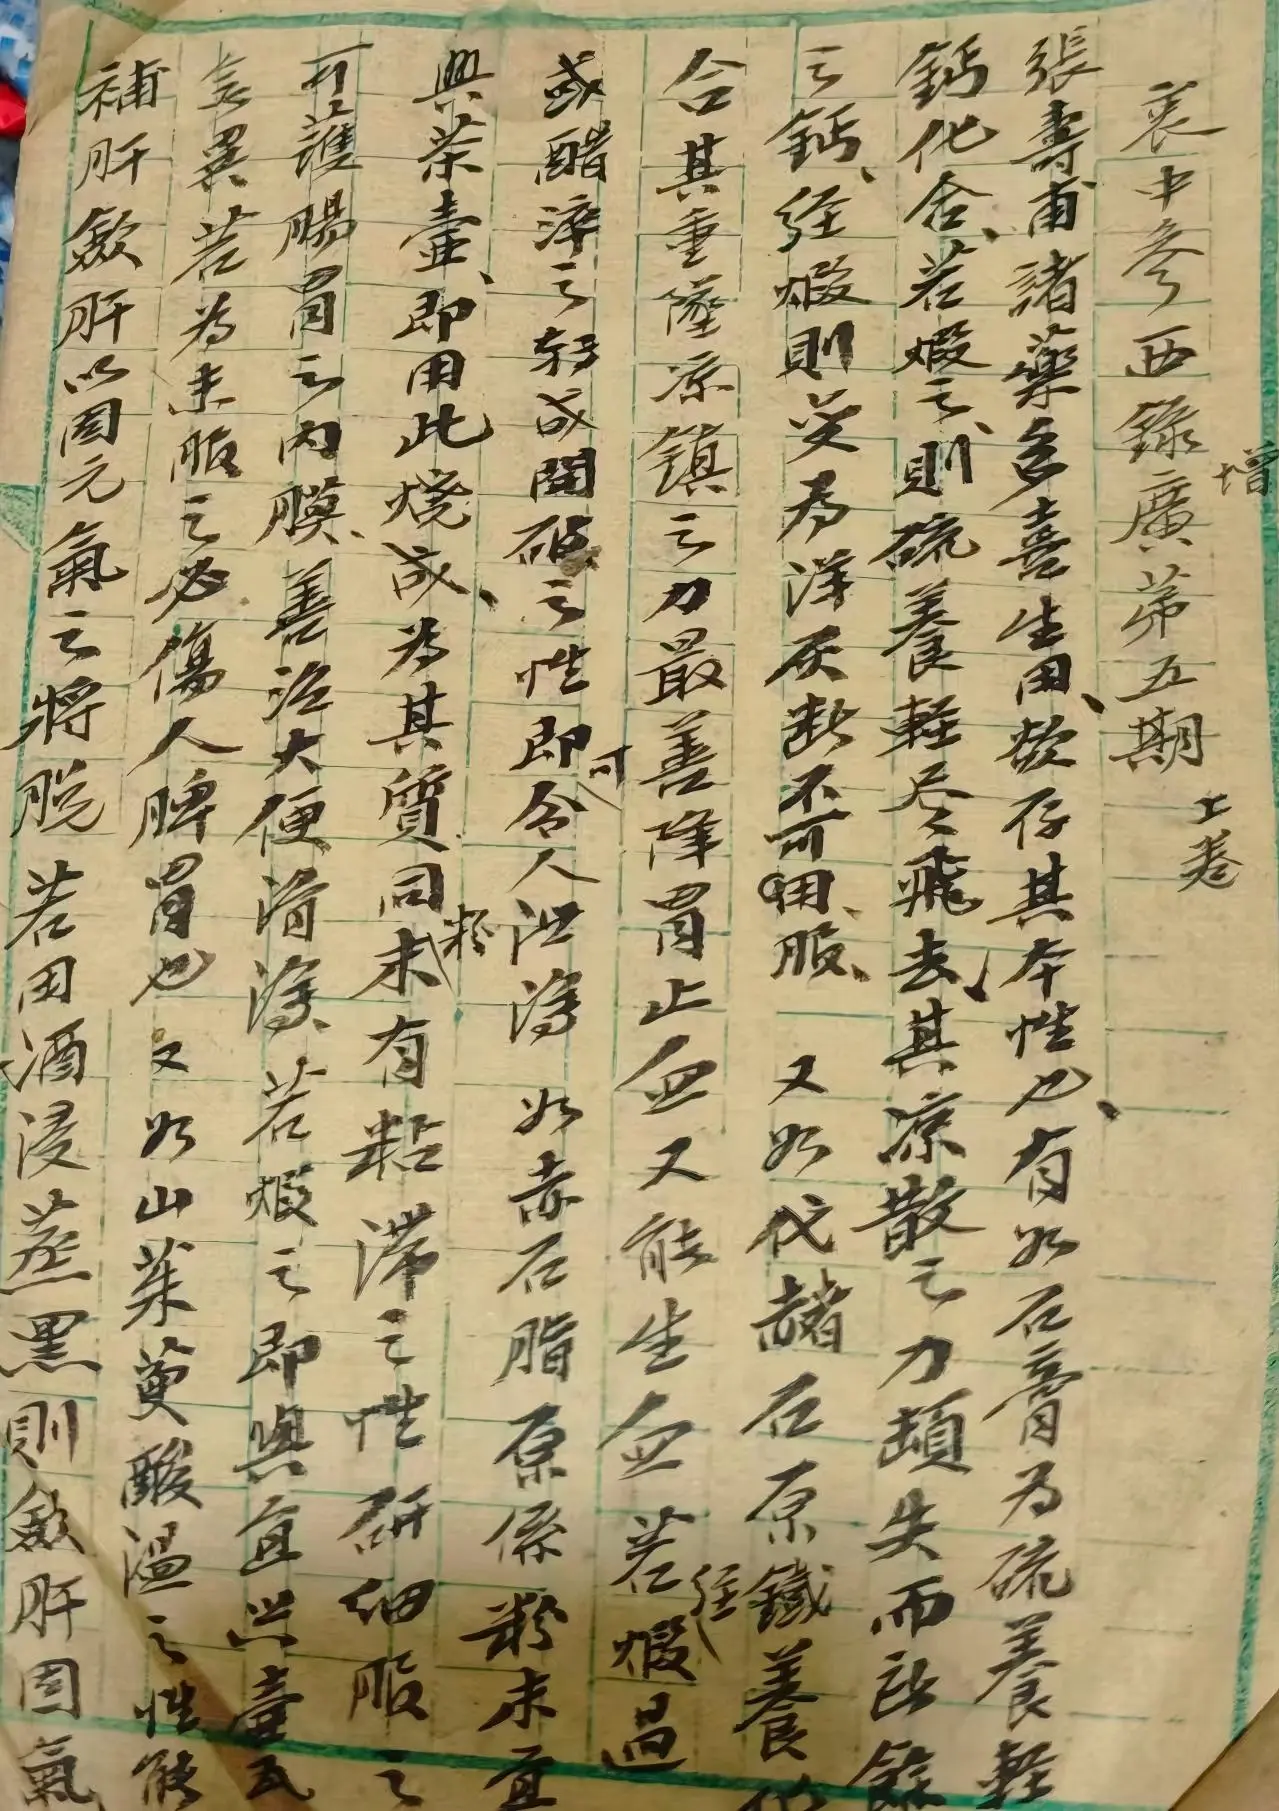 衷中參西錄增廣第五期 上卷
張壽甫諸藥多喜生用、欲存其本性也、有如石膏為硫養輕
鈣化合、若煅之、則硫養輕尽飛去、其凉散之力頓失而所餘
之鈣、經煅則变为洋灰断不可用服、 又如代赭石原鐵養化
合其重墜凉鎮之力最善降胃止血又能生血若經煅過
或醋淬之轉成開破之性即可令人泄瀉 如赤石脂原係粉末宜
興茶壺、即用此燒成、為其質同粉末有粘滞之性研细服之
可護腸胃之内膜、善治大便滑瀉、若煅之即與宜兴壺瓦
無異若為末服之必傷人脾胃也 又如山茱萸酸温之性能
補肝斂肝以固元氣之將脱若用酒浸蒸黑則斂肝固氣